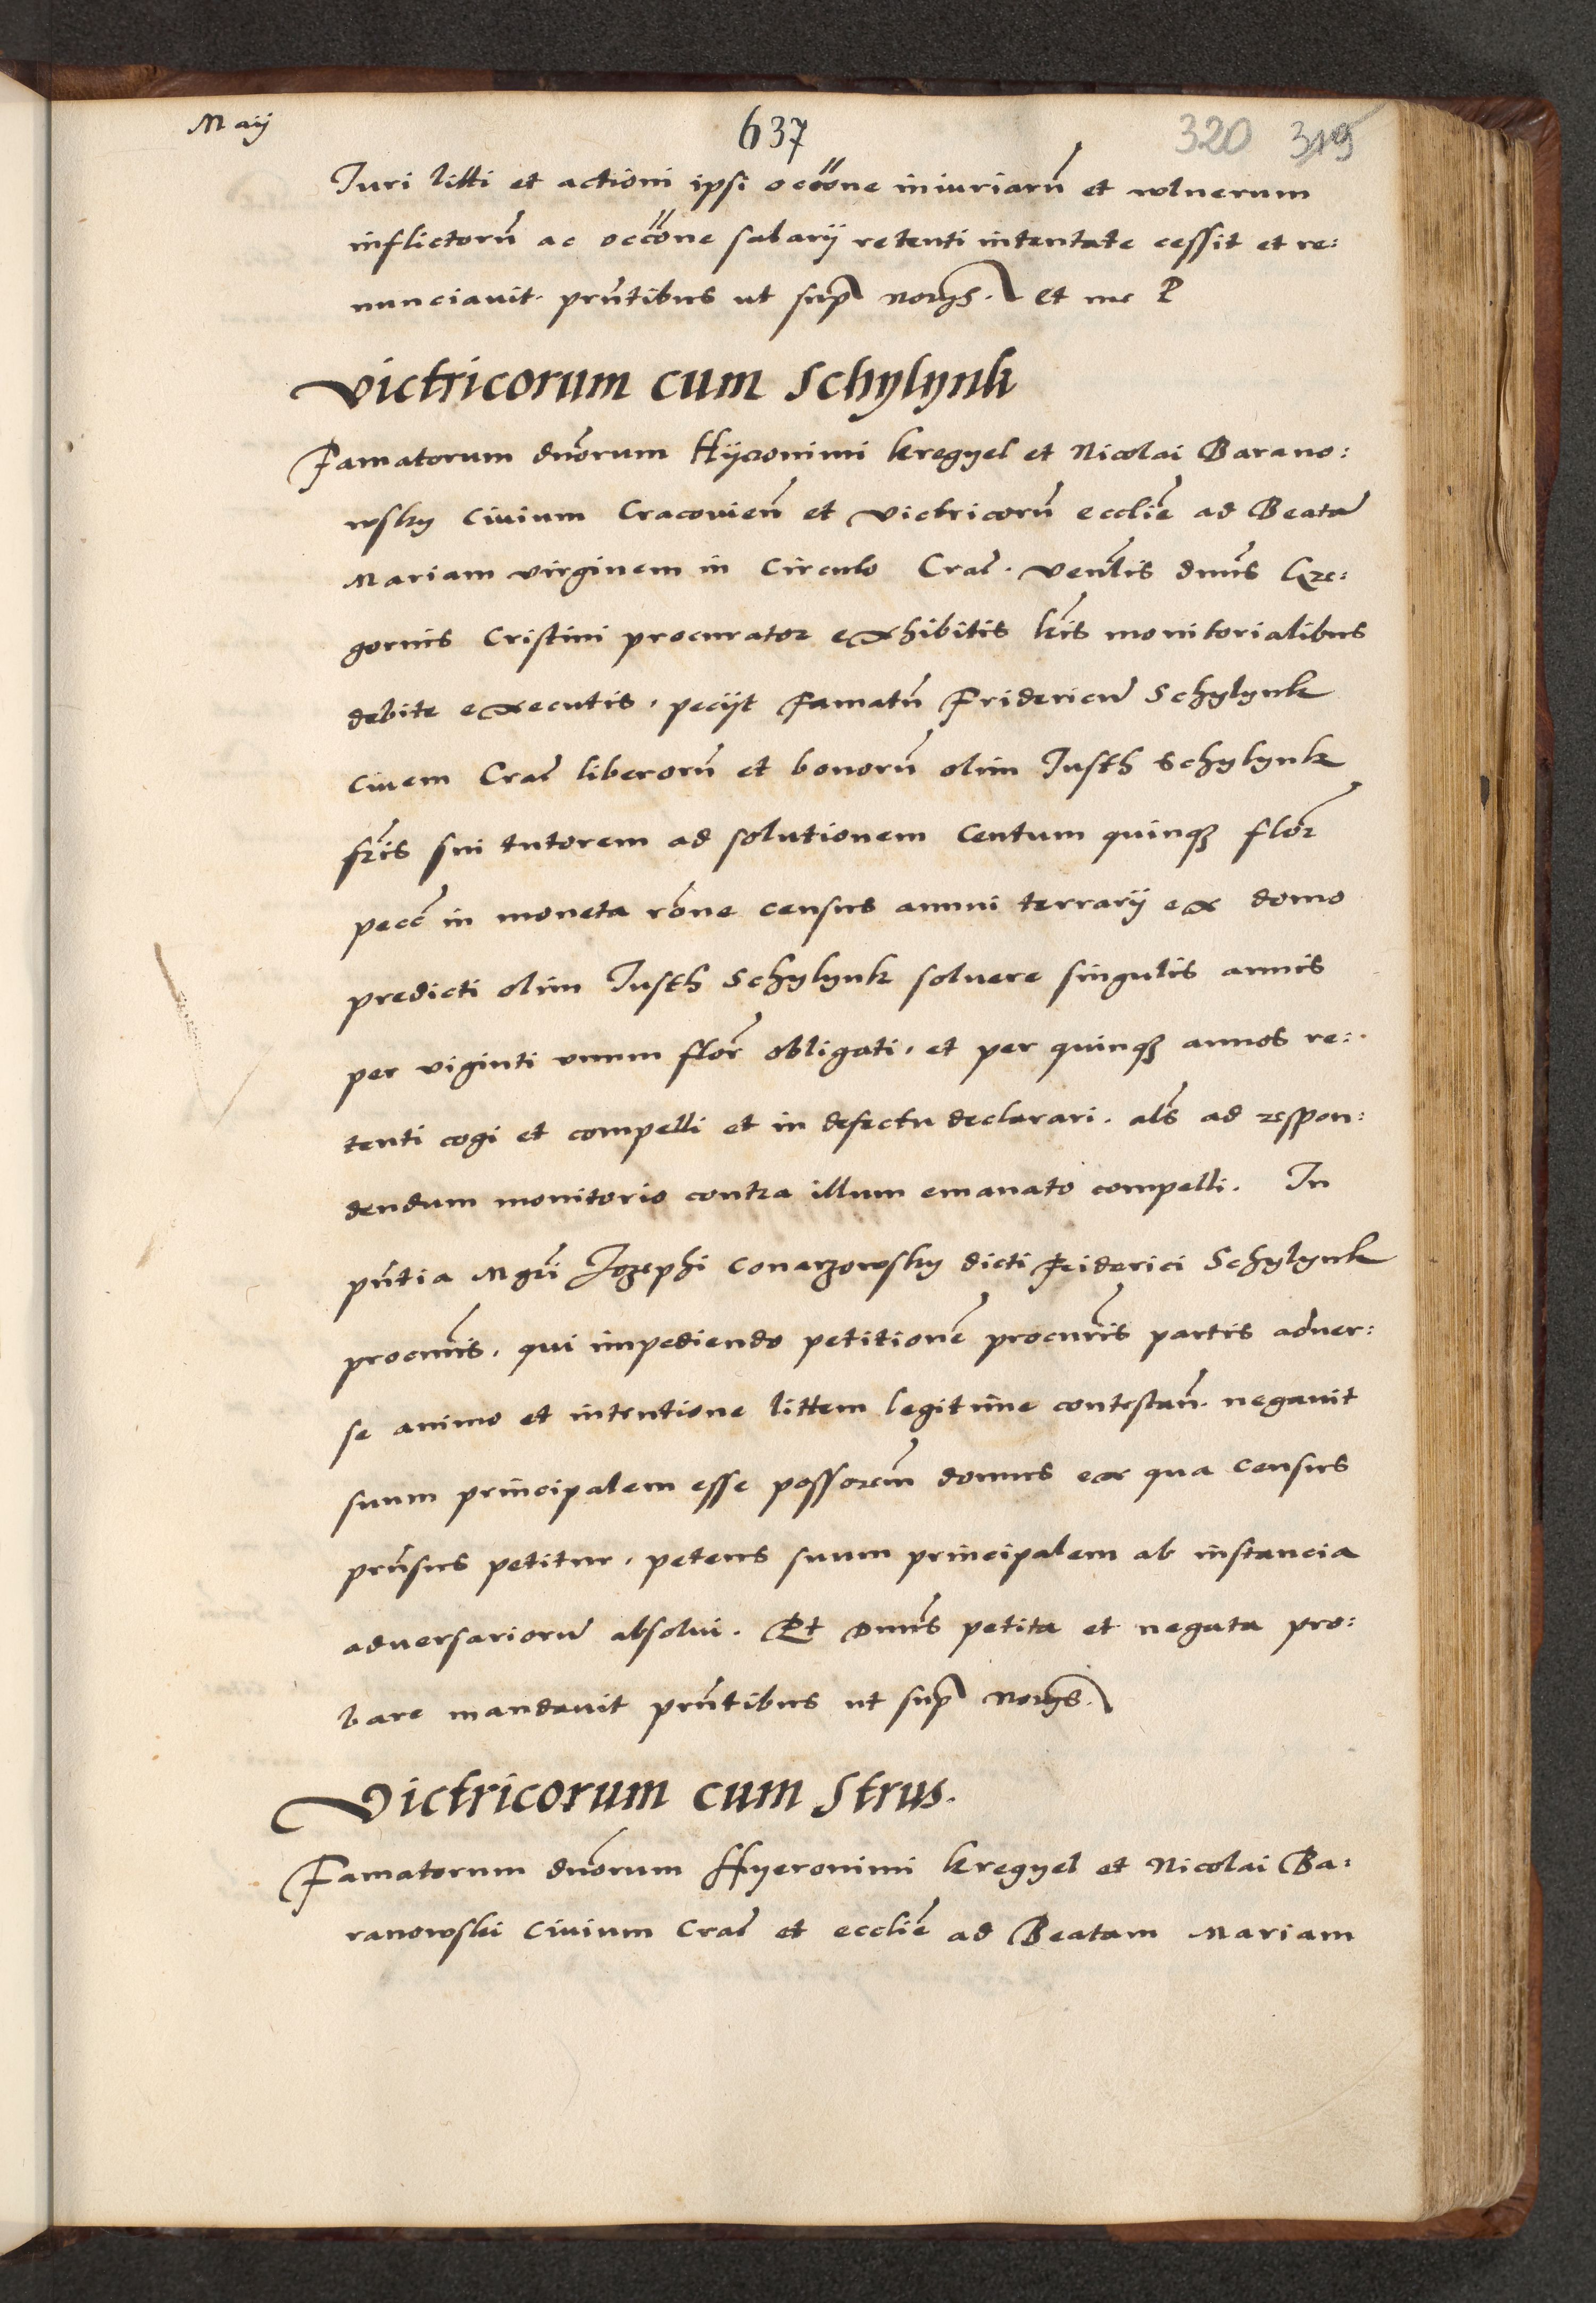 Maij
637
320 319
Iuri litti et actioni ipsi occõne iniuriarũ et wlnerum
inflictorũ ac occõne salarij retenti intentate cessit et re:
nunciavit. prñtibus ut sup Et me P
Victricorum cum Schylynk
Famatorum dñorum Hyeronimi kregyel et Nicolai Barano:
wsky civium Cracovieñ et victricorũ ecclie ad Beata
Mariam virginem in Circulo Crac. Venlis dnus Gre:
gorius Cristini procurator exhibitis lris monitorialibus
debite executis, peciit Famatũ Fridericũ Schylynk
civem Crac liberorũ et bonorũ olim Iusth Schylynk
fris sui tutorem ad solutionem Centum quinqꝫ flor
pecc in moneta rõne census annui terrarij ex domo
predicti olim Iusth Schylynk solvere singulis annis
per viginti unum flor obligati, et per quinqꝫ annos re:
tenti cogi et compelli et in defectu declarari. als ad respon:
dendum monitorio contra illum emanato compelli. In
pñtia Mgri Jozephi Conarzowsky dicti Friderici Schylynk
procuris, qui impediendo petitionẽ procuris partis adver:
se animo et intentione littem legitime contestañ. negavit
suum principalem esse possorem domus ex qua census
prñsus petitur, petens suum principalem ab instancia
adversariorũ absolvi. Et Dnus petita et negata pro:
bare mandavit prñtibus ut sup
Victricorum cum Strus.
Famatorum dñorum Hyeronimi kregyel et Nicolai Ba:
ranowski civium Crac et ecclie ad Beatam Mariam